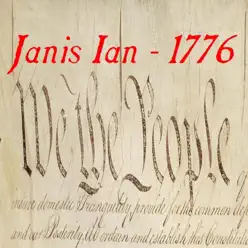 Janis Ian - 1776
We the People
insure domestic Tranquility, provide for the common
and our Posterity, do ordain and establish this Constitut